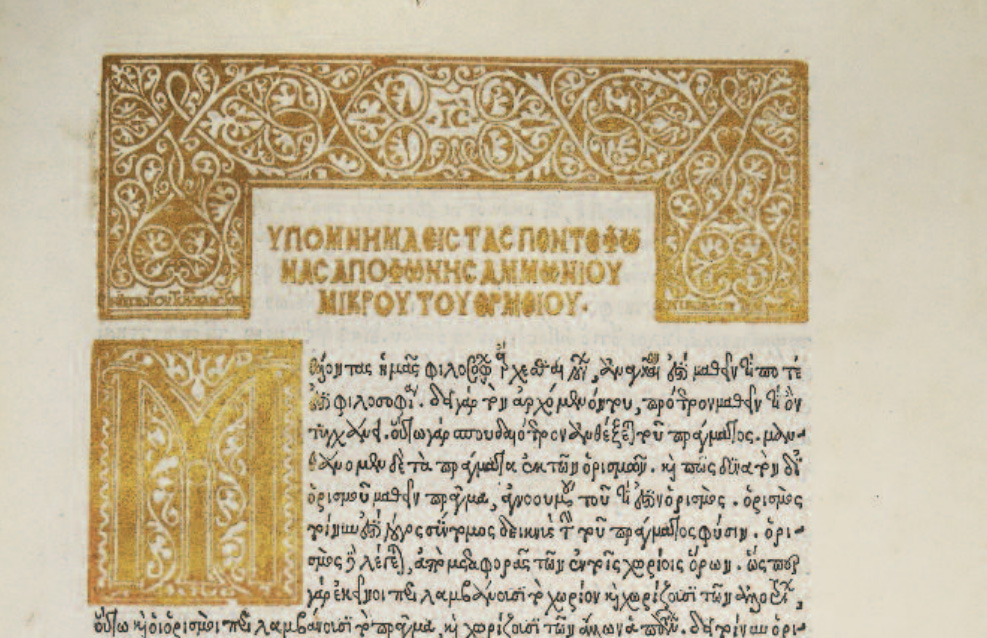 ΙC
ΥΠΟΜΝΗΜΑ ΕΙC ΤΑC ΠΕΝΤΕ ΦΩ
ΝΑC ΑΠΟ ΦΩΝΗC ΑΜΜΩΝΙΟΥ
ΜΙΚΡΟΥ ΤΟΥ ΕΡΜΕΙΟΥ·
Μέλλοντας ἡμᾶς φιλοσοφίας ἄρχεσθαι, ἀναγκαῖον ἐστι μαθεῖν τί ποτέ
ἐστι φιλοσοφία. δεῖ γὰρ τὸν ἀρχόμενον, πρότερον μαθεῖν τί ὂν
τυγχάνει. οὕτω γὰρ σπουδαιότερον ἀνθέξεται τοῦ πράγματος. μαν-
θάνομεν δὲ τὰ πράγματα ἐκ τῶν ὁρισμῶν. καὶ πῶς δυνατὸν δι'
ὁρισμοῦ μαθεῖν πρᾶγμα, τοῦ τί ἐστιν ὁρισμός. ὁρισμὸς
τοίνυν ἐστὶ λόγος σύντομος τοῦ πράγματος φύσιν. ὁρι-
σμὸς δὲ λέγεται, ἀπὸ μεταφορᾶς τῶν ἐν τοῖς χωρίοις ὅρων. ὥσπερ
γὰρ ἐκεῖνοι περιλαμβάνουσι τὸ χωρίον καὶ χωρίζουσι τῶν
οὕτω καὶ οἱ ὁρισμοὶ περιλαμβάνουσι τὸ πρᾶγμα, καὶ χωρίζουσι τῶν δεῖ τοίνυν ὁρι-